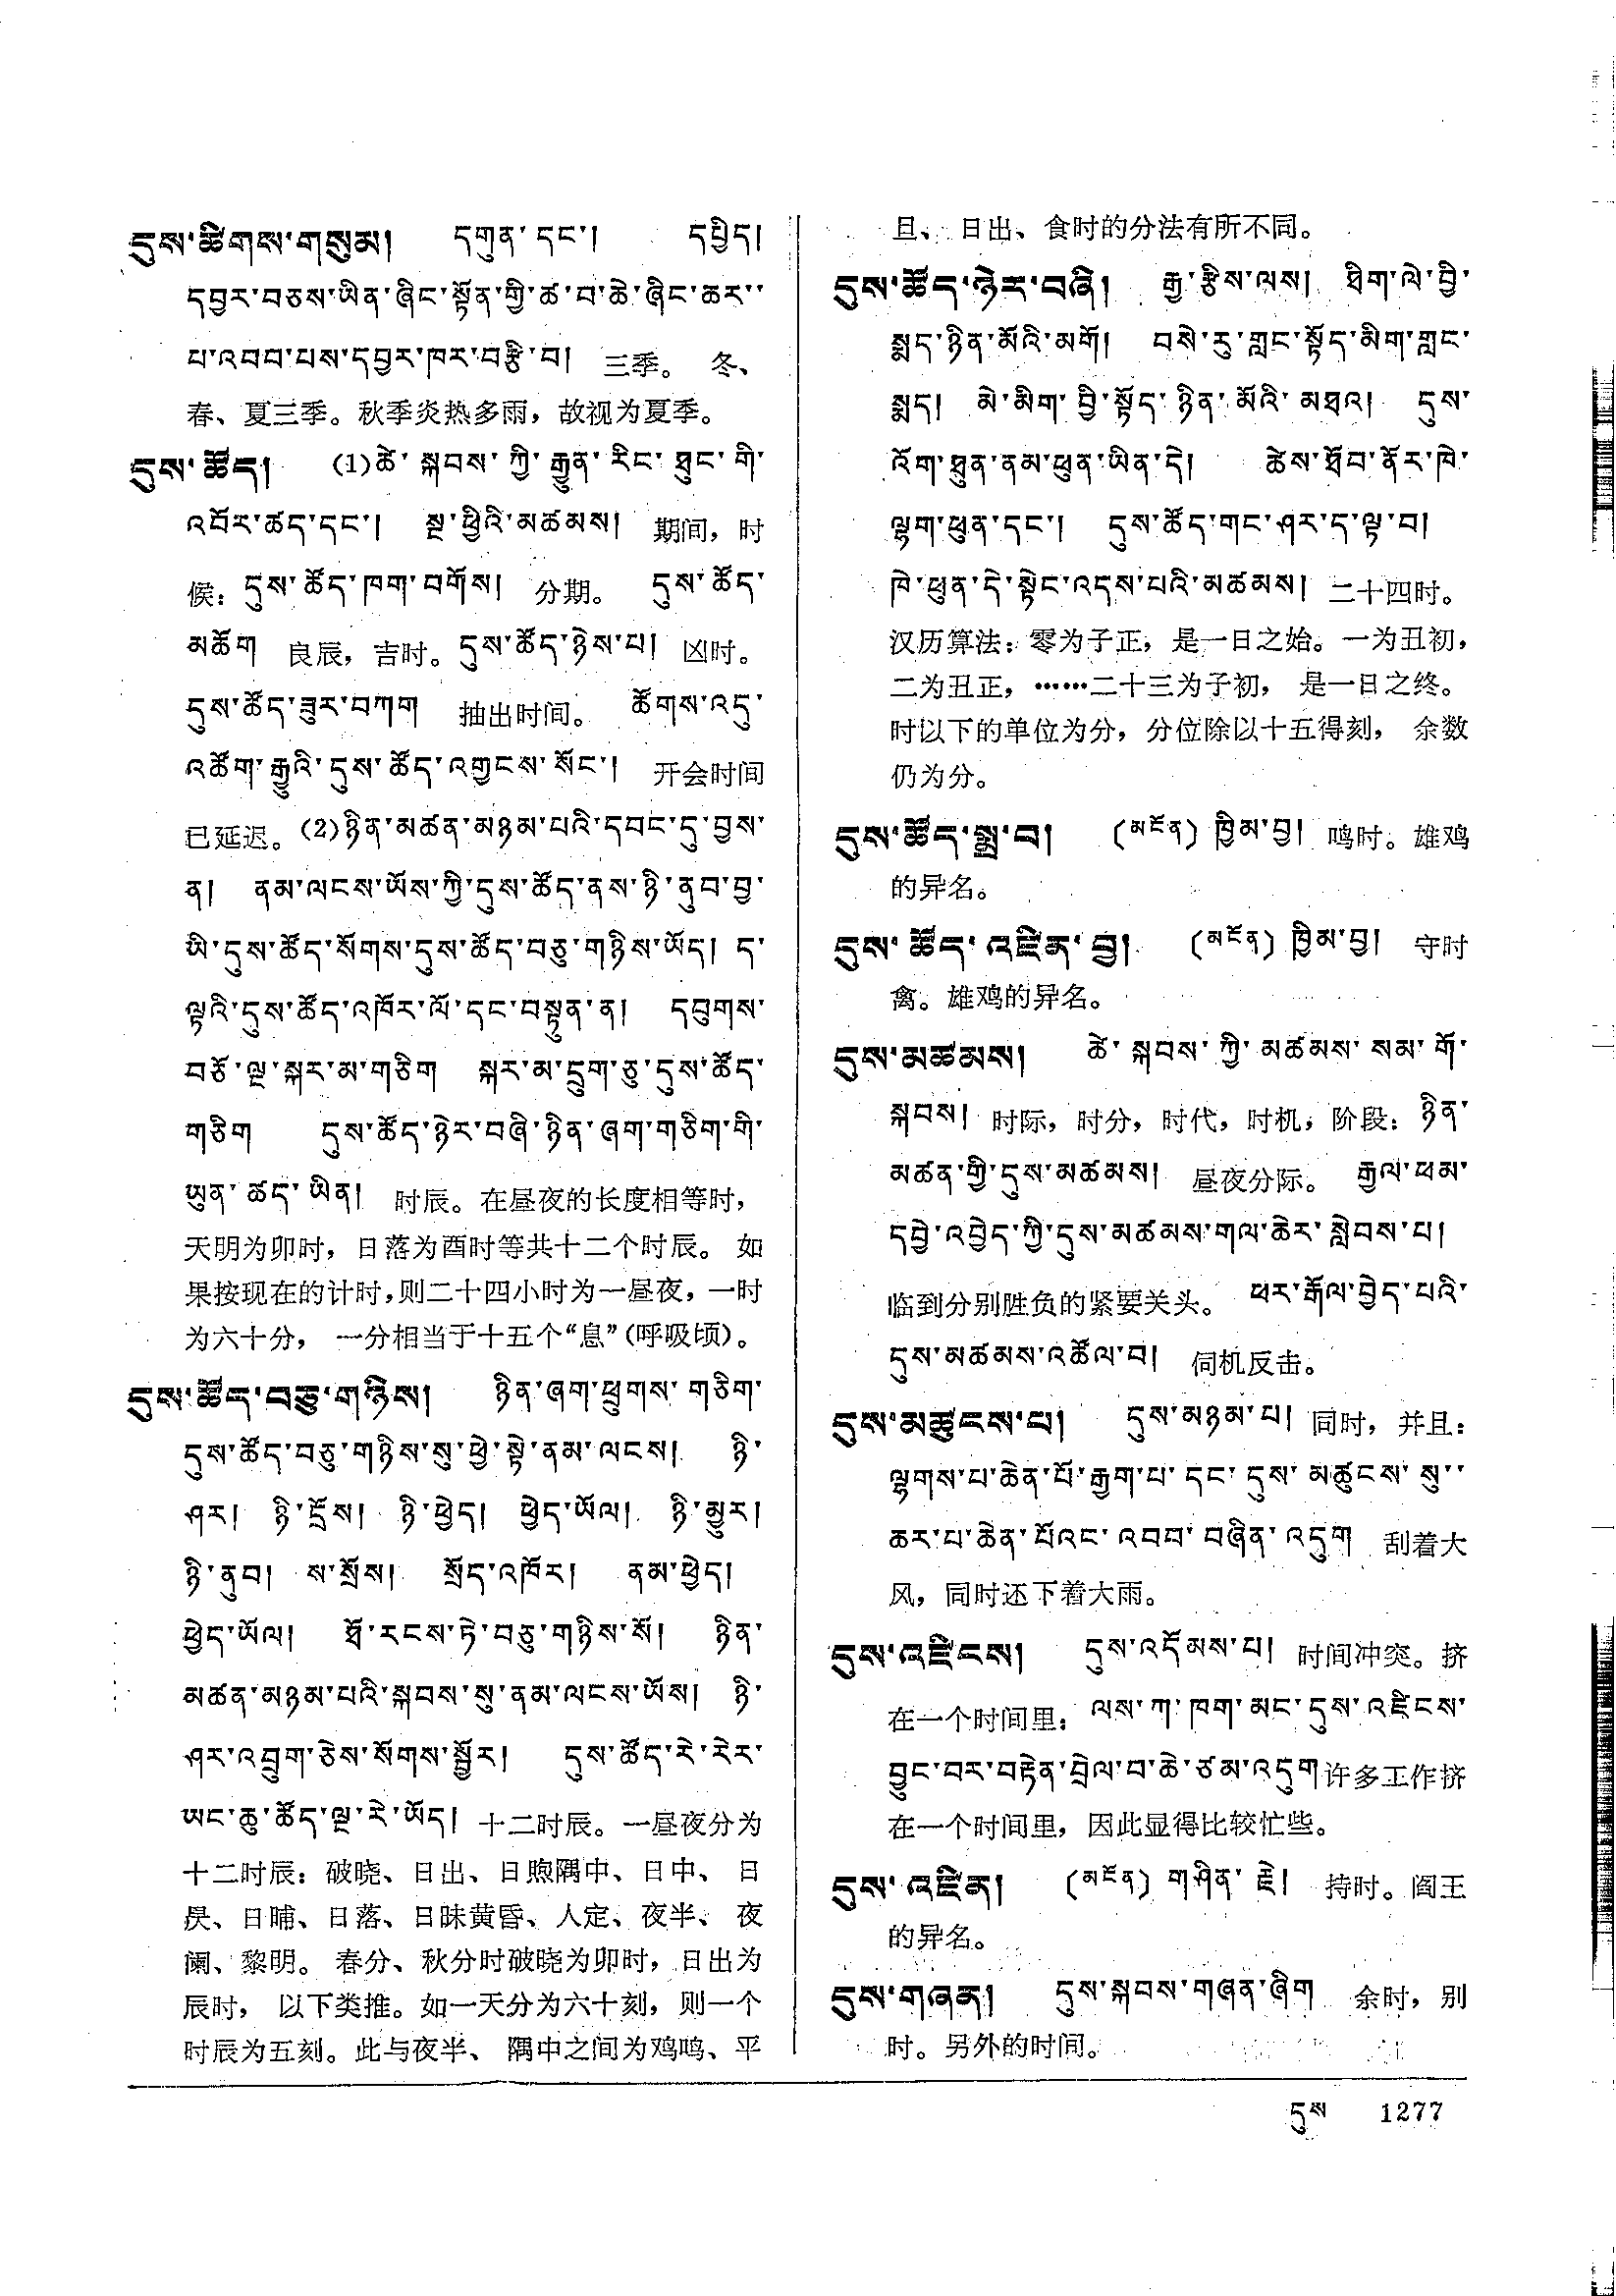 དུས་ཚིགས་གསུམ། དགུན་དང་། དཔྱིད།
དབྱར་བཅས་ཡིན་ཞིང་སྟོན་གྱི་ཚ་བ་ཆེ་ཞིང་ཆར་
པ་འབབ་པས་དབྱར་ཁར་བརྩི་བ། 三季。 冬、
春、夏三季。秋季炎热多雨，故视为夏季。
དུས་ཚོད། (1)ཚེ་སྐབས་ཀྱི་རྒྱུན་རིང་ཐུང་གི་
འབོར་ཚད་དང་། སྔ་ཕྱིའི་མཚམས། 期间，时
候：དུས་ཚོད་ཁག་བགོས། 分期。 དུས་ཚོད་
མཆོག 良辰，吉时。དུས་ཚོད་ཉེས་པ། 凶时。
དུས་ཚོད་ཟུར་བཀག 抽出时间。 ཚོགས་འདུ་
འཚོག་རྒྱུའི་དུས་ཚོད་འགྱངས་སོང་། 开会时间
已延迟。(2)ཉིན་མཚན་མཉམ་པའི་དབང་དུ་བྱས་
ན། ནམ་ལངས་ཡོས་ཀྱི་དུས་ཚོད་ནས་ཉི་ནུབ་བྱ་
ཡི་དུས་ཚོད་སོགས་དུས་ཚོད་བཅུ་གཉིས་ཡོད། ད་
ལྟའི་དུས་ཚོད་འཁོར་ལོ་དང་བསྟུན་ན། དབུགས་
བཅོ་ལྔ་སྐར་མ་གཅིག སྐར་མ་དྲུག་ཅུ་དུས་ཚོད་
གཅིག དུས་ཚོད་ཉེར་བཞི་ཉིན་ཞག་གཅིག་གི་
ཡུན་ཚད་ཡིན། 时辰。在昼夜的长度相等时，
天明为卯时，日落为酉时等共十二个时辰。 如
果按现在的计时，则二十四小时为一昼夜，一时
为六十分， 一分相当于十五个“息”（呼吸顷）。
དུས་ཚོད་བཅུ་གཉིས། ཉིན་ཞག་ཕྲུགས་གཅིག་
དུས་ཚོད་བཅུ་གཉིས་སུ་ཕྱེ་སྟེ་ནམ་ལངས། ཉི་
ཤར། ཉི་དྲོས། ཉི་ཕྱེད། ཕྱེད་ཡོལ། ཉི་མྱུར།
ཉི་ནུབ། ས་སྲོས། སྲོད་འཁོར། ནམ་ཕྱེད།
ཕྱེད་ཡོལ། ཐོ་རངས་ཏེ་བཅུ་གཉིས་སོ། ཉིན་
མཚན་མཉམ་པའི་སྐབས་སུ་ནམ་ལངས་ཡོས། ཉི་
ཤར་འབྲུག་ཅེས་སོགས་སྦྱོར། དུས་ཚོད་རེ་རེར་
ཡང་ཆུ་ཚོད་ལྔ་རེ་ཡོད། 十二时辰。一昼夜分为
十二时辰：破晓、日出、日煦隅中、日中、 日
昃、日晡、日落、日昧黄昏、人定、夜半、 夜
阑、黎明。 春分、秋分时破晓为卯时，日出为
辰时， 以下类推。如一天分为六十刻，则一个
时辰为五刻。此与夜半、 隅中之间为鸡鸣、平
旦、 日出、食时的分法有所不同。
དུས་ཚོད་ཉེར་བཞི། རྒྱ་རྩིས་ལས། ཐིག་ལེ་བྱི་
སྨད་ཉིན་མོའི་མགོ། བསེ་རུ་གླང་སྟོད་མིག་གླང་
སྨད། མེ་མིག་བྱི་སྟོད་ཉིན་མོའི་མཐའ། དུས་
འོག་ཐུན་ནམ་ཕུན་ཡིན་དེ། ཚེས་ཐོབ་ནོར་ཁེ་
ལྷག་ཕུན་དང་། དུས་ཚོད་གང་ཤར་ད་ལྟ་བ།
ཁེ་ཕུན་དེ་སྟེང་འདས་པའི་མཚམས། 二十四时。
汉历算法：零为子正，是一日之始。一为丑初，
二为丑正，……二十三为子初， 是一日之终。
时以下的单位为分，分位除以十五得刻， 余数
仍为分。
དུས་ཚོད་སྨྲ་བ། (མངོན) ཁྱིམ་བྱ། 鸣时。雄鸡
的异名。
དུས་ཚོད་འཛིན་བྱ། (མངོན) ཁྱིམ་བྱ། 守时
禽。雄鸡的异名。
དུས་མཚམས། ཚེ་སྐབས་ཀྱི་མཚམས་སམ་གོ་
སྐབས། 时际，时分，时代，时机，阶段：ཉིན་
མཚན་གྱི་དུས་མཚམས། 昼夜分际。 རྒྱལ་ཕམ་
དབྱེ་འབྱེད་ཀྱི་དུས་མཚམས་གལ་ཆེར་སླེབས་པ།
临到分别胜负的紧要关头。 ཕར་རྒོལ་བྱེད་པའི་
དུས་མཚམས་འཚོལ་བ། 伺机反击。
དུས་མཚུངས་པ། དུས་མཉམ་པ། 同时，并且：
ལྷགས་པ་ཆེན་པོ་རྒྱག་པ་དང་དུས་མཚུངས་སུ་
ཆར་པ་ཆེན་པོའང་འབབ་བཞིན་འདུག 刮着大
风，同时还下着大雨。
དུས་འཛིངས། དུས་འདོམས་པ། 时间冲突。挤
在一个时间里：ལས་ཀ་ཁག་མང་དུས་འཛིངས་
བྱུང་བར་བརྟེན་བྲེལ་བ་ཆེ་ཙམ་འདུག许多工作挤
在一个时间里，因此显得比较忙些。
དུས་འཛིན། (མངོན) གཤིན་རྗེ། 持时。阎王
的异名。
དུས་གཞན། དུས་སྐབས་གཞན་ཞིག 余时，别
时。另外的时间。
དུས 1277